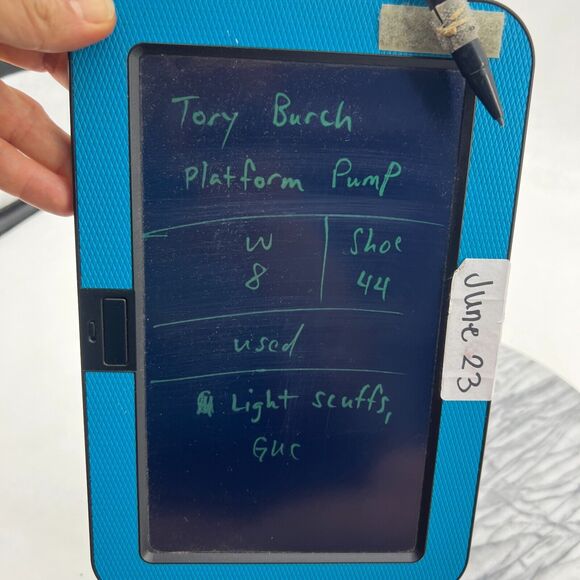 Tory Burch
Platform Pump
W
8
Shoe
44
used
Light scuffs,
GUC
June 23